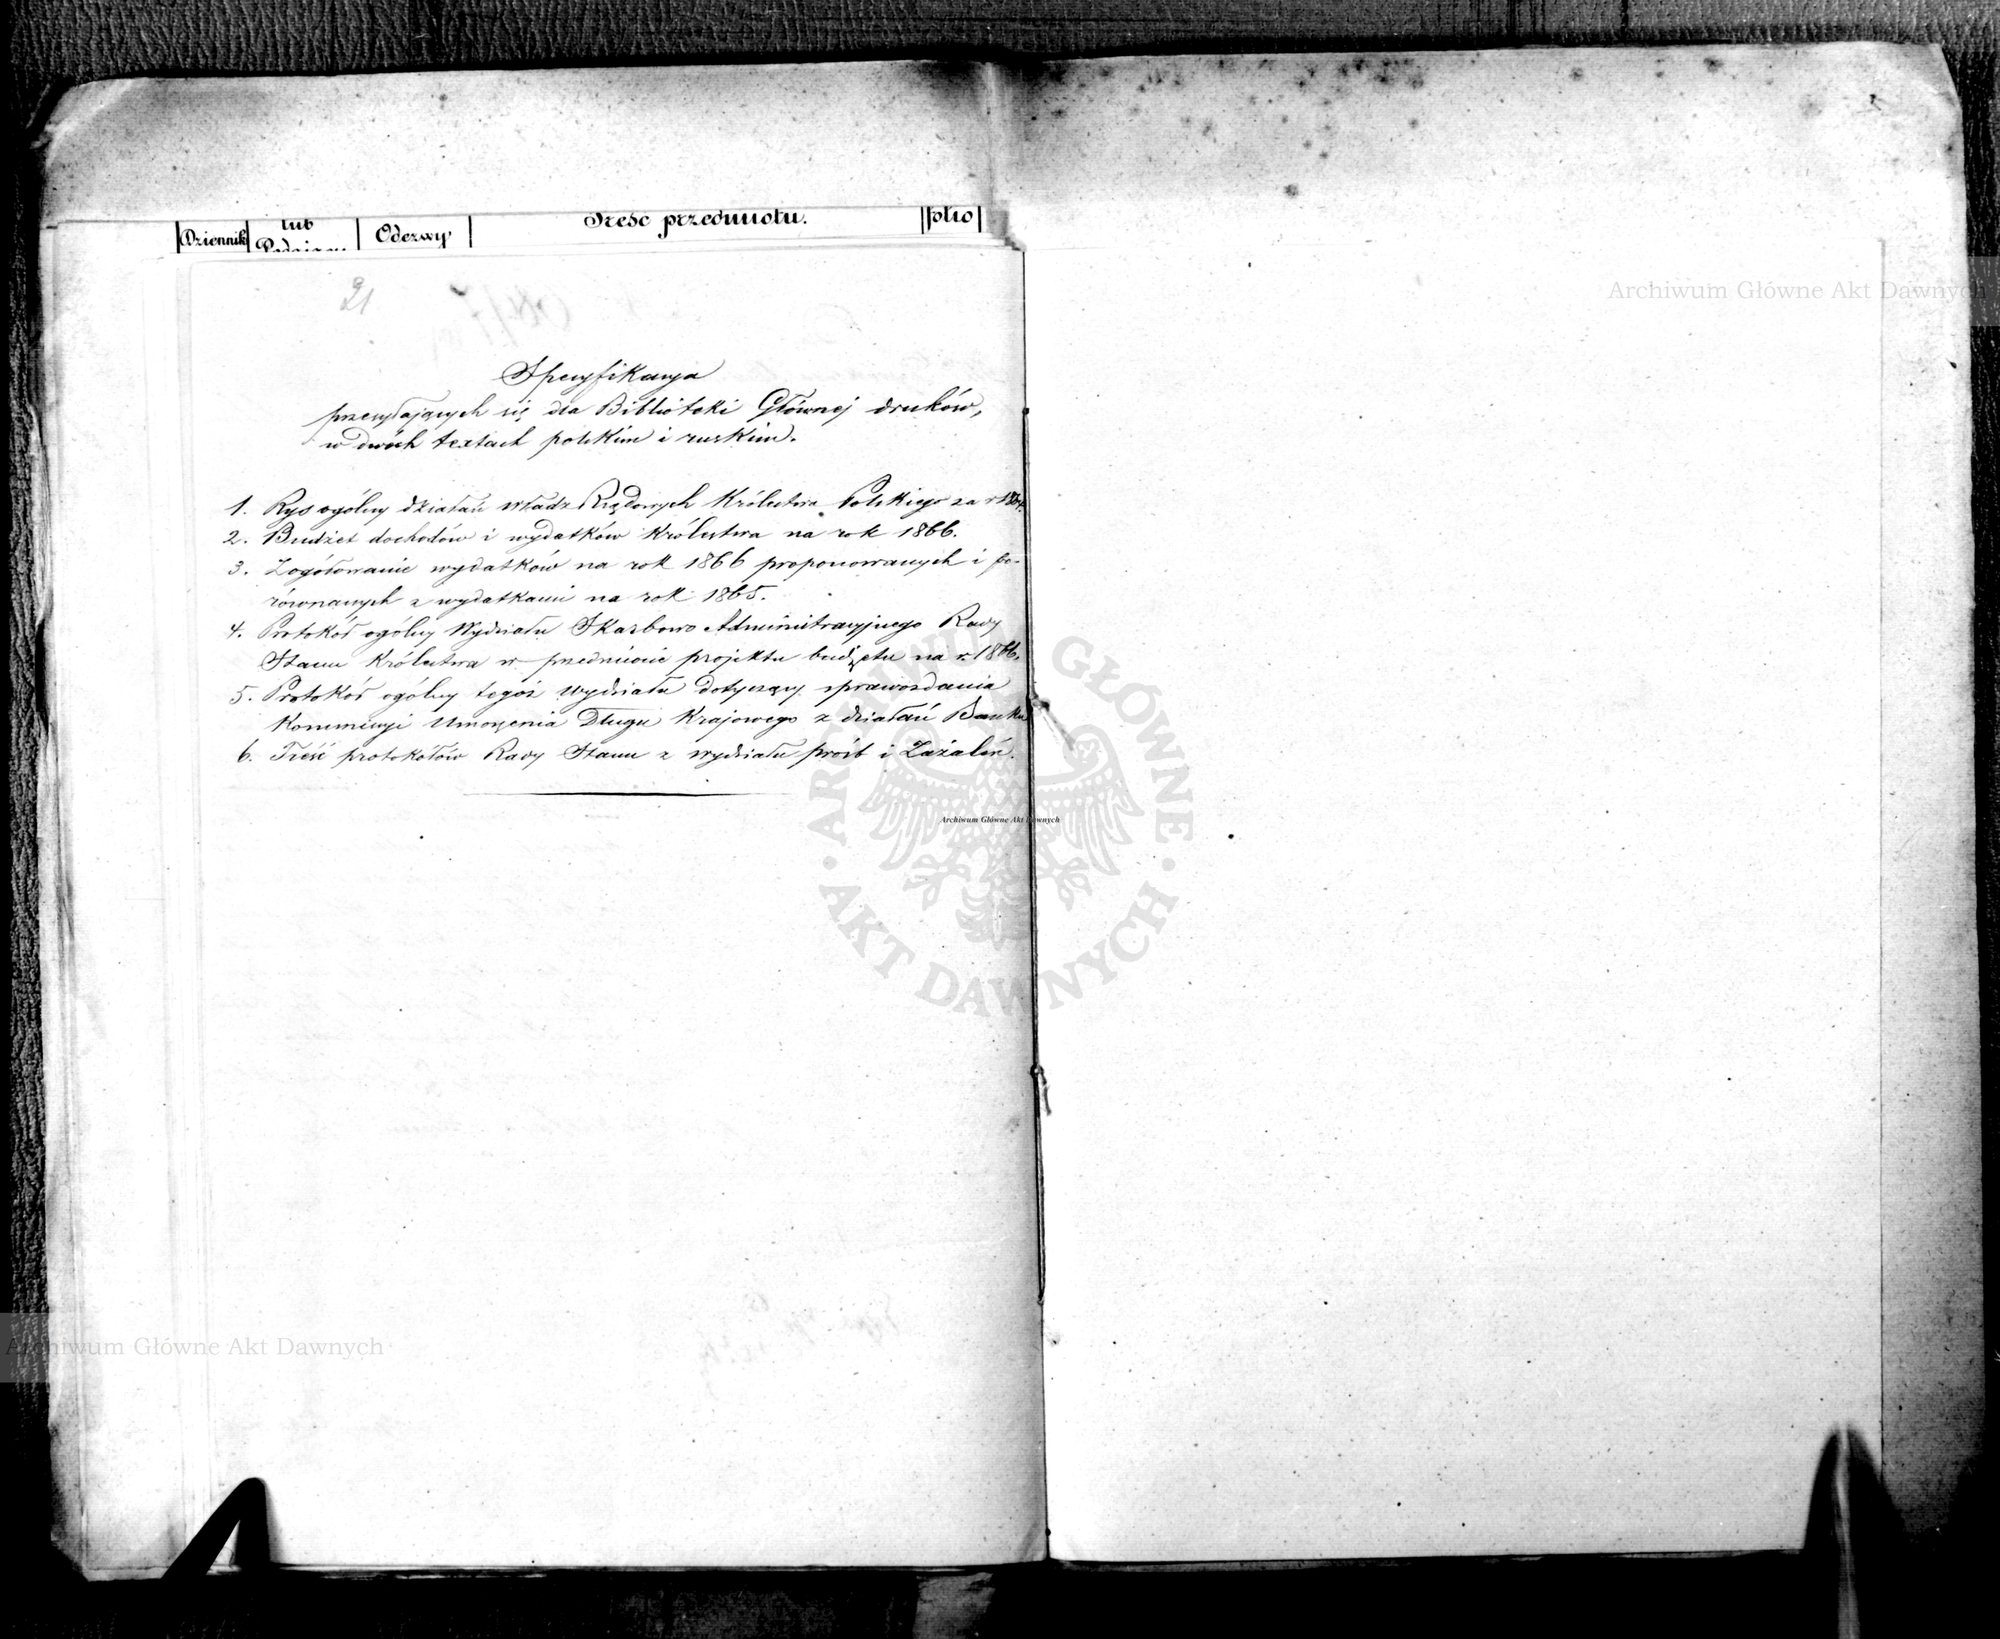 Dziennik
lub
Odezwy
Treść przedmiotu.
folio
21
Specyfikacya
przesyłających się dla Bibliotéki Głównej druków,
w dwóch textach polskim i ruskim.
1. Rys ogólny działań władz Rządowych Królestwa Polskiego za r 1864.
2. Budżet dochodów i wydatków Królestwa na rok 1866.
3. Zogółowanie wydatków na rok 1866 proponowanych i po-
równanych z wydatkami na rok 1865.
4. Protokół ogólny Wydziału Skarbowo Administracyjnego Rady
Stanu Królestwa w przedmiocie projektu budżetu na r. 1866.
5. Protokół ogólny tegoż Wydziału dotyczący sprawozdania
Kommissyi Umorzenia Długu Krajowego z działań Banku
6. Treść protokołów Rady Stanu z wydziału próśb i Zażaleń.
Archiwum Główne Akt Dawnych
ARCHIWUM GŁÓWNE
AKT DAWNYCH
Archiwum Główne Akt Dawnych
Archiwum Główne Akt Dawnych